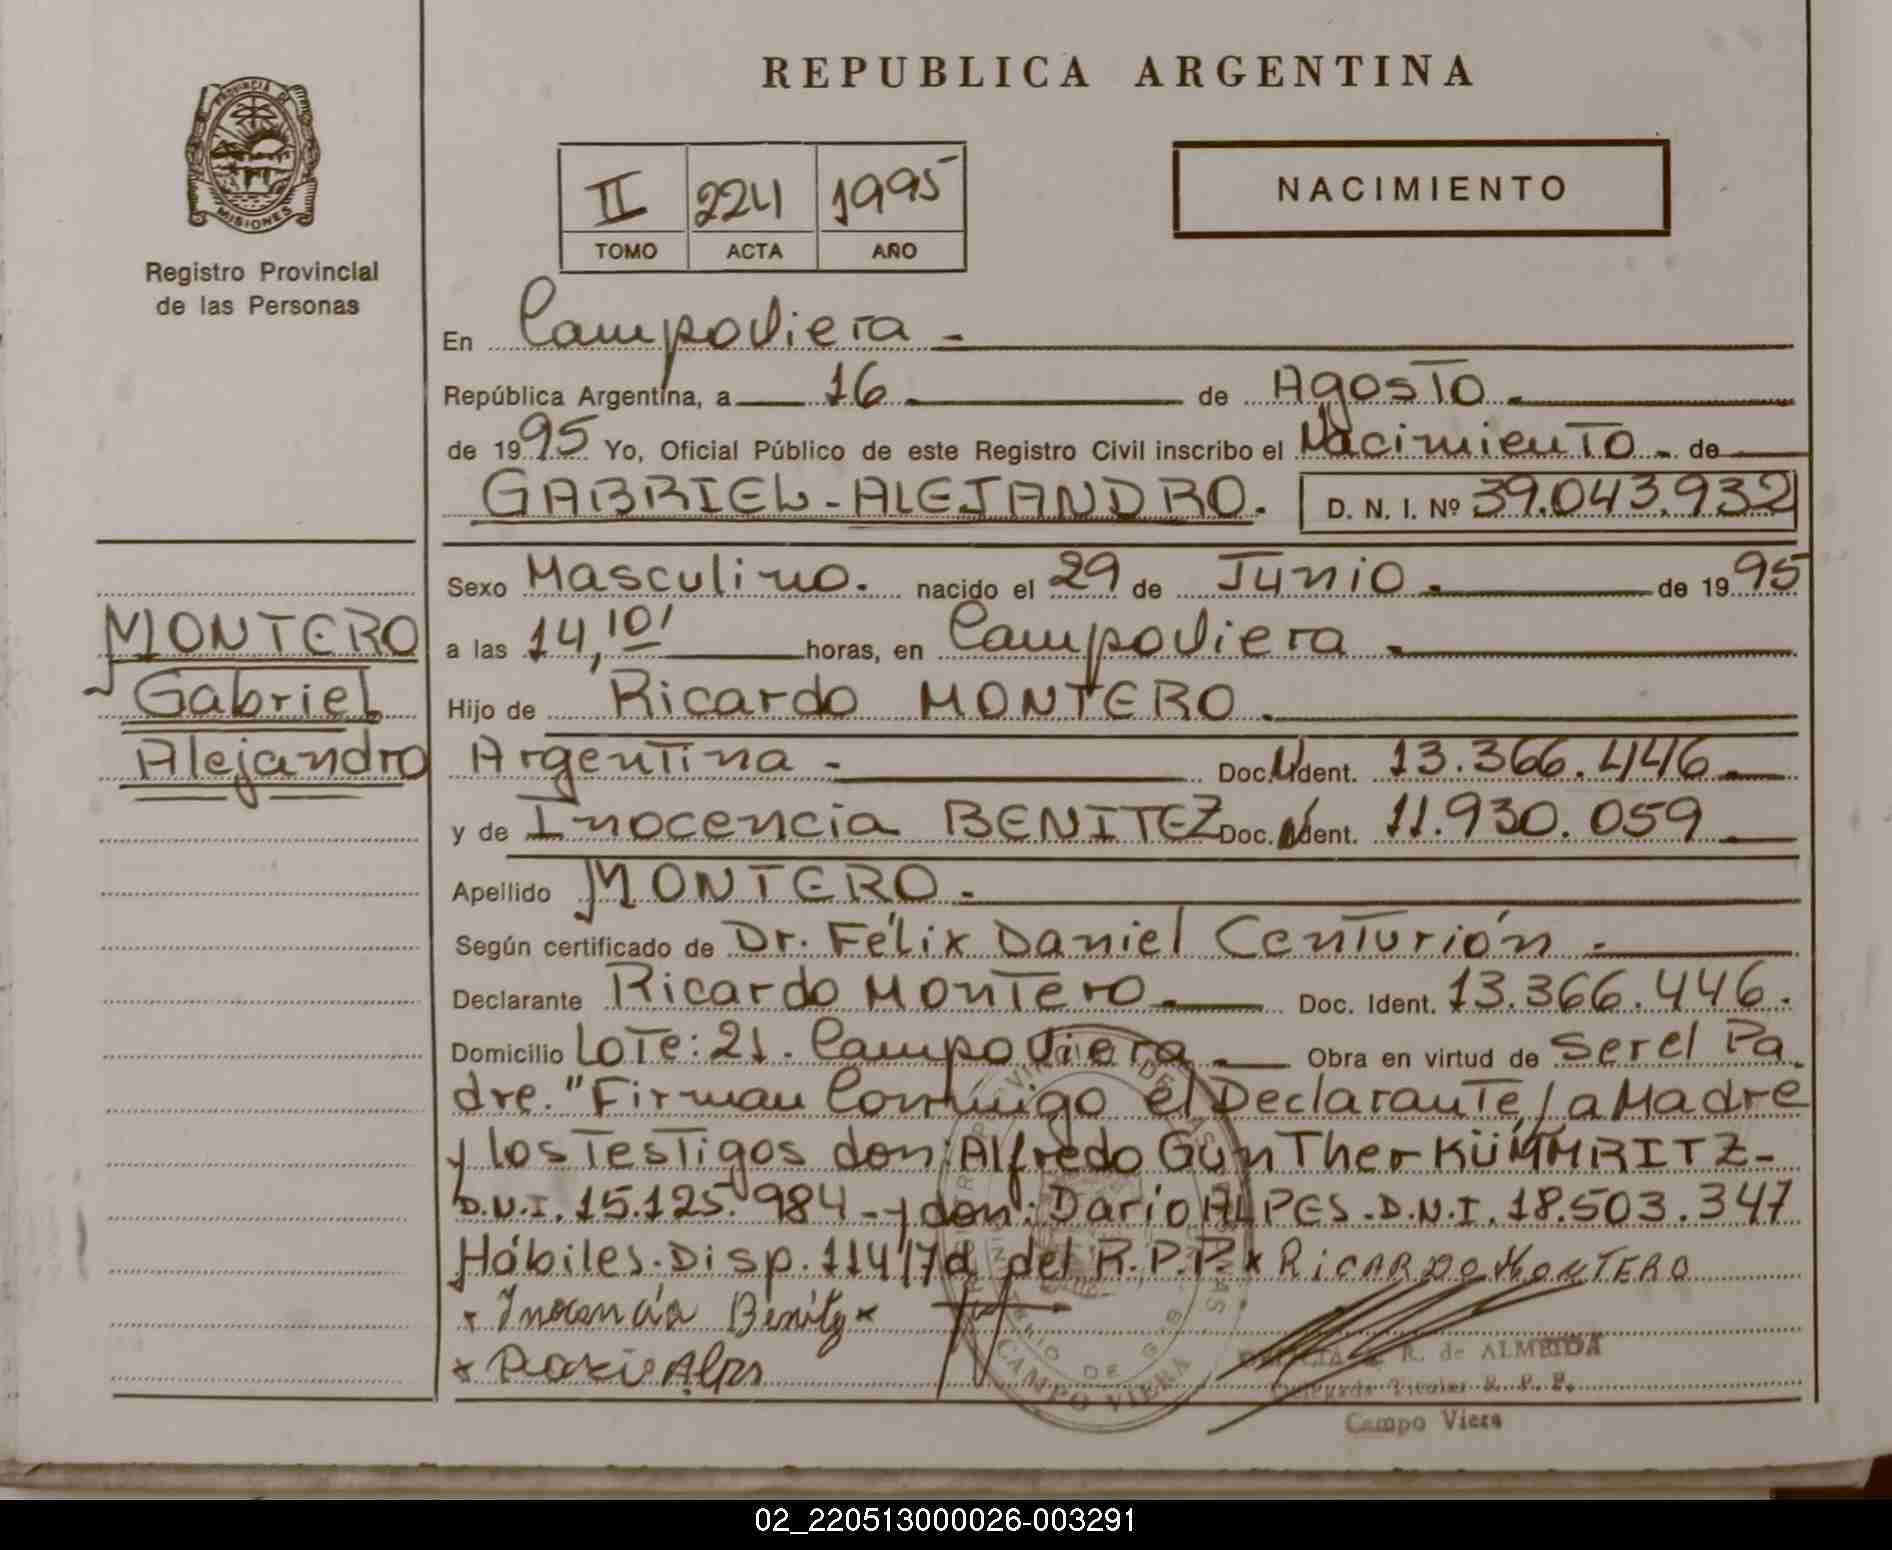 REPUBLICA ARGENTINA
PROVINCIA DE
MISIONES
Registro Provincial
de las Personas
II 224 1995
TOMO ACTA AÑO
NACIMIENTO
En Campo Viera -
República Argentina, a 16 de Agosto.
de 1995 Yo, Oficial Público de este Registro Civil inscribo el Nacimiento - de
GABRIEL - ALEJANDRO. D. N. I. Nº 39.043.932
Sexo Masculino. nacido el 29 de Junio. de 1995
MONTERO
Gabriel
Alejandro
a las 14,10' horas, en Campo Viera -
Hijo de Ricardo MONTERO.
Argentina - Doc. Ident. 13.366.446.
y de Inocencia BENITEZ Doc. Ident. 11.930.059
Apellido MONTERO -
Según certificado de Dr. Félix Daniel Centurión -
Declarante Ricardo Montero - Doc. Ident. 13.366.446.
Domicilio Lote: 21. Campo Viera - Obra en virtud de Ser el Pa
dre. "Firman Conmigo el Declarante, la Madre
y los Testigos don: Alfredo Günther KÜMMRITZ-
D.N.I. 15.125.984 - y don: Dario ALPES. D.N.I. 18.503.347
Hábiles. Disp. 114/7d del R.P.P. x RICARDO MONTERO
x Inocencia Benitez x
x Dario Alpes
R. de ALMEIDA
Delegada Titular R. P. P.
Campo Viera
CAMPO VIERA
02_220513000026-003291